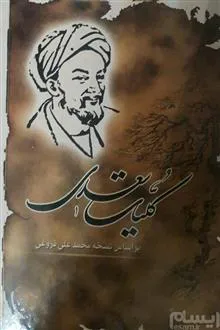 کلیات سعدی
بر اساس نسخه محمد علی فروغی
ایسام
esam.ir